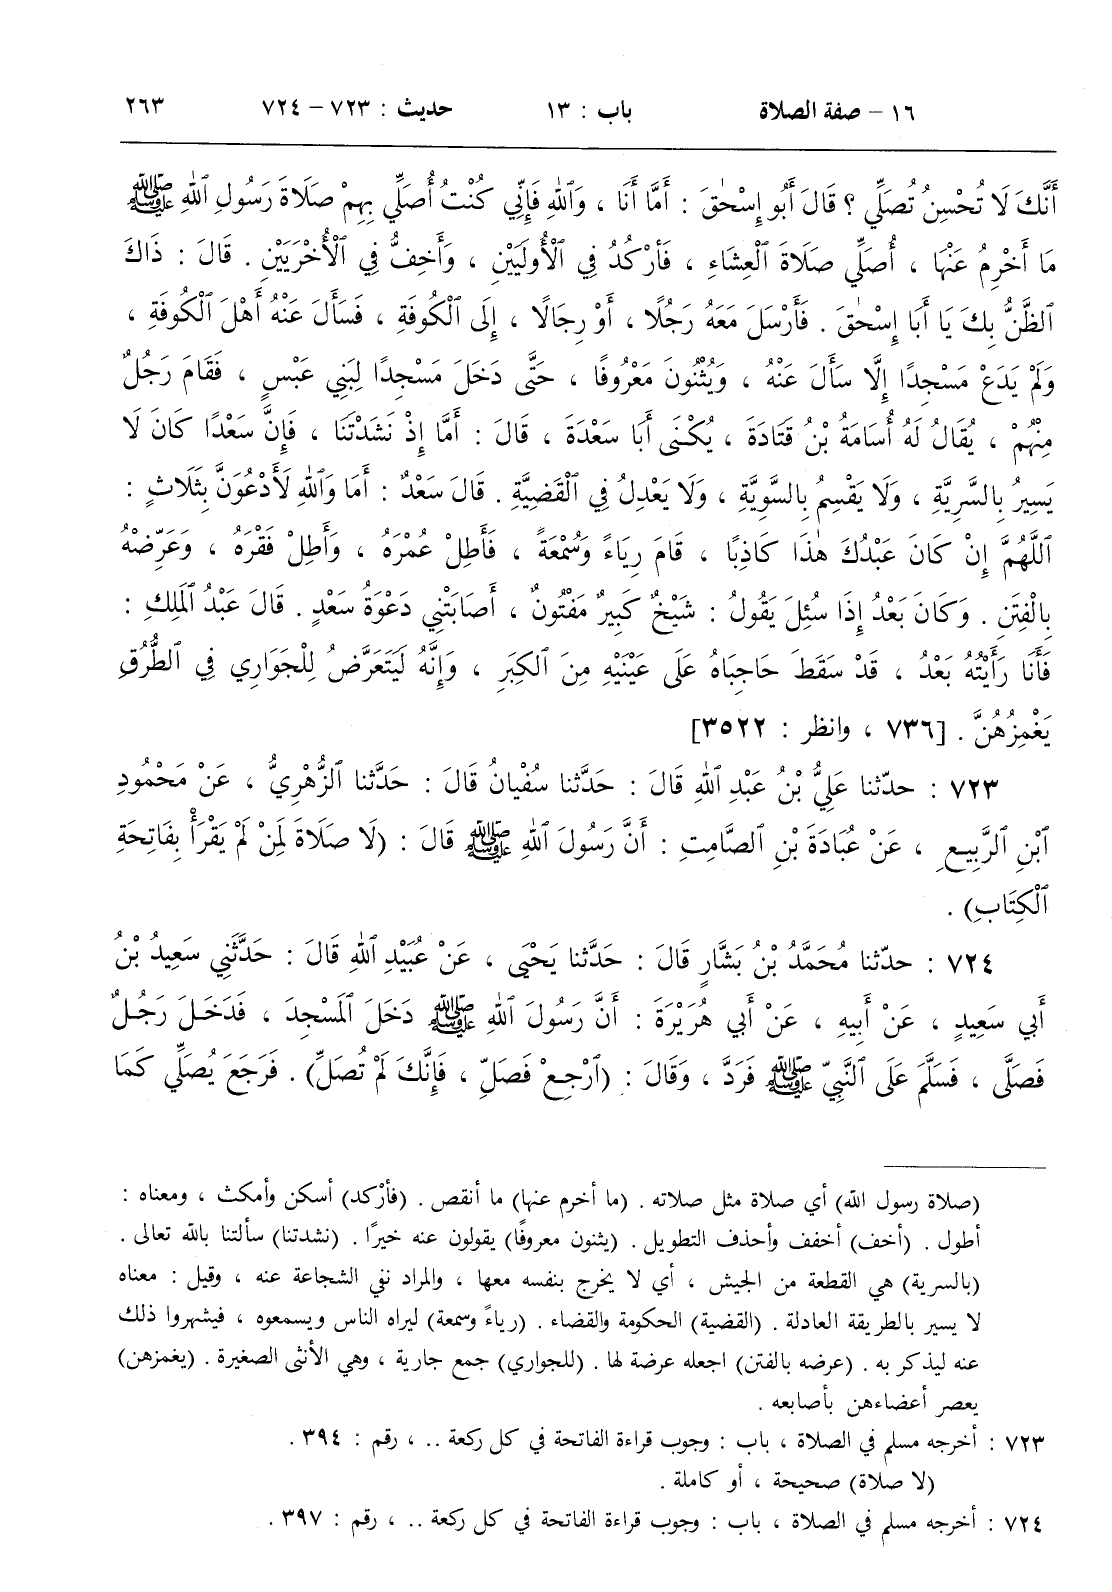 ١٦ – صفة الصلاة باب : ١٣ حديث : ٧٢٣ – ٧٢٤ ٢٦٣
أَنَّكَ لَا تُحْسِنُ تُصَلِّي ؟ قَالَ أَبُو إِسْحٰقَ : أَمَّا أَنَا ، وَٱللهِ فَإِنِّي كُنْتُ أُصَلِّي بِهِمْ صَلَاةَ رَسُولِ ٱللهِ ﷺ
مَا أَخْرِمُ عَنْهَا ، أُصَلِّي صَلَاةَ ٱلْعِشَاءِ ، فَأَرْكُدُ فِي ٱلْأُولَيَيْنِ ، وَأُخِفُّ فِي ٱلْأُخْرَيَيْنِ . قَالَ : ذَاكَ
ٱلظَّنُّ بِكَ يَا أَبَا إِسْحٰقَ . فَأَرْسَلَ مَعَهُ رَجُلًا ، أَوْ رِجَالًا ، إِلَى ٱلْكُوفَةِ ، فَسَأَلَ عَنْهُ أَهْلَ ٱلْكُوفَةِ ،
وَلَمْ يَدَعْ مَسْجِدًا إِلَّا سَأَلَ عَنْهُ ، وَيُثْنُونَ مَعْرُوفًا ، حَتَّى دَخَلَ مَسْجِدًا لِبَنِي عَبْسٍ ، فَقَامَ رَجُلٌ
مِنْهُمْ ، يُقَالُ لَهُ أُسَامَةُ بْنُ قَتَادَةَ ، يُكْنَى أَبَا سَعْدَةَ ، قَالَ : أَمَّا إِذْ نَشَدْتَنَا ، فَإِنَّ سَعْدًا كَانَ لَا
يَسِيرُ بِالسَّرِيَّةِ ، وَلَا يَقْسِمُ بِالسَّوِيَّةِ ، وَلَا يَعْدِلُ فِي ٱلْقَضِيَّةِ . قَالَ سَعْدٌ : أَمَا وَٱللهِ لَأَدْعُوَنَّ بِثَلَاثٍ :
ٱللَّهُمَّ إِنْ كَانَ عَبْدُكَ هٰذَا كَاذِبًا ، قَامَ رِيَاءً وَسُمْعَةً ، فَأَطِلْ عُمْرَهُ ، وَأَطِلْ فَقْرَهُ ، وَعَرِّضْهُ
بِالْفِتَنِ . وَكَانَ بَعْدُ إِذَا سُئِلَ يَقُولُ : شَيْخٌ كَبِيرٌ مَفْتُونٌ ، أَصَابَتْنِي دَعْوَةُ سَعْدٍ . قَالَ عَبْدُ ٱلْمَلِكِ :
فَأَنَا رَأَيْتُهُ بَعْدُ ، قَدْ سَقَطَ حَاجِبَاهُ عَلَى عَيْنَيْهِ مِنَ ٱلْكِبَرِ ، وَإِنَّهُ لَيَتَعَرَّضُ لِلْجَوَارِي فِي ٱلطُّرُقِ
يَغْمِزُهُنَّ . [٧٣٦ ، وانظر : ٣٥٢٢]
٧٢٣ : حدّثنا عَلِيُّ بْنُ عَبْدِ ٱللهِ قَالَ : حَدَّثنا سُفْيَانُ قَالَ : حَدَّثنا ٱلزُّهْرِيُّ ، عَنْ مَحْمُودِ
ٱبْنِ ٱلرَّبِيعِ ، عَنْ عُبَادَةَ بْنِ ٱلصَّامِتِ : أَنَّ رَسُولَ ٱللهِ ﷺ قَالَ : (لَا صَلَاةَ لِمَنْ لَمْ يَقْرَأْ بِفَاتِحَةِ
ٱلْكِتَابِ) .
٧٢٤ : حدّثنا مُحَمَّدُ بْنُ بَشَّارٍ قَالَ : حَدَّثنا يَحْيَى ، عَنْ عُبَيْدِ ٱللهِ قَالَ : حَدَّثَنِي سَعِيدُ بْنُ
أَبِي سَعِيدٍ ، عَنْ أَبِيهِ ، عَنْ أَبِي هُرَيْرَةَ : أَنَّ رَسُولَ ٱللهِ ﷺ دَخَلَ ٱلْمَسْجِدَ ، فَدَخَلَ رَجُلٌ
فَصَلَّى ، فَسَلَّمَ عَلَى ٱلنَّبِيِّ ﷺ فَرَدَّ ، وَقَالَ : (ٱرْجِعْ فَصَلِّ ، فَإِنَّكَ لَمْ تُصَلِّ) . فَرَجَعَ يُصَلِّي كَمَا
(صلاة رسول الله) أي صلاة مثل صلاته . (ما أخرم عنها) ما أنقص . (فأرْكد) أسكن وأمكث ، ومعناه :
أطول . (أخف) أخفف وأحذف التطويل . (يثنون معروفًا) يقولون عنه خيرًا . (نشدتنا) سألتنا بالله تعالى .
(بالسرية) هي القطعة من الجيش ، أي لا يخرج بنفسه معها ، والمراد نفي الشجاعة عنه ، وقيل : معناه
لا يسير بالطريقة العادلة . (القضية) الحكومة والقضاء . (رياءً وسمعة) ليراه الناس ويسمعوه ، فيشهروا ذلك
عنه ليذكر به . (عرضه بالفتن) اجعله عرضة لها . (للجواري) جمع جارية ، وهي الأنثى الصغيرة . (يغمزهن)
يعصر أعضاءهن بأصابعه .
٧٢٣ : أخرجه مسلم في الصلاة ، باب : وجوب قراءة الفاتحة في كل ركعة .. ، رقم : ٣٩٤ .
(لا صلاة) صحيحة ، أو كاملة .
٧٢٤ : أخرجه مسلم في الصلاة ، باب : وجوب قراءة الفاتحة في كل ركعة .. ، رقم : ٣٩٧ .